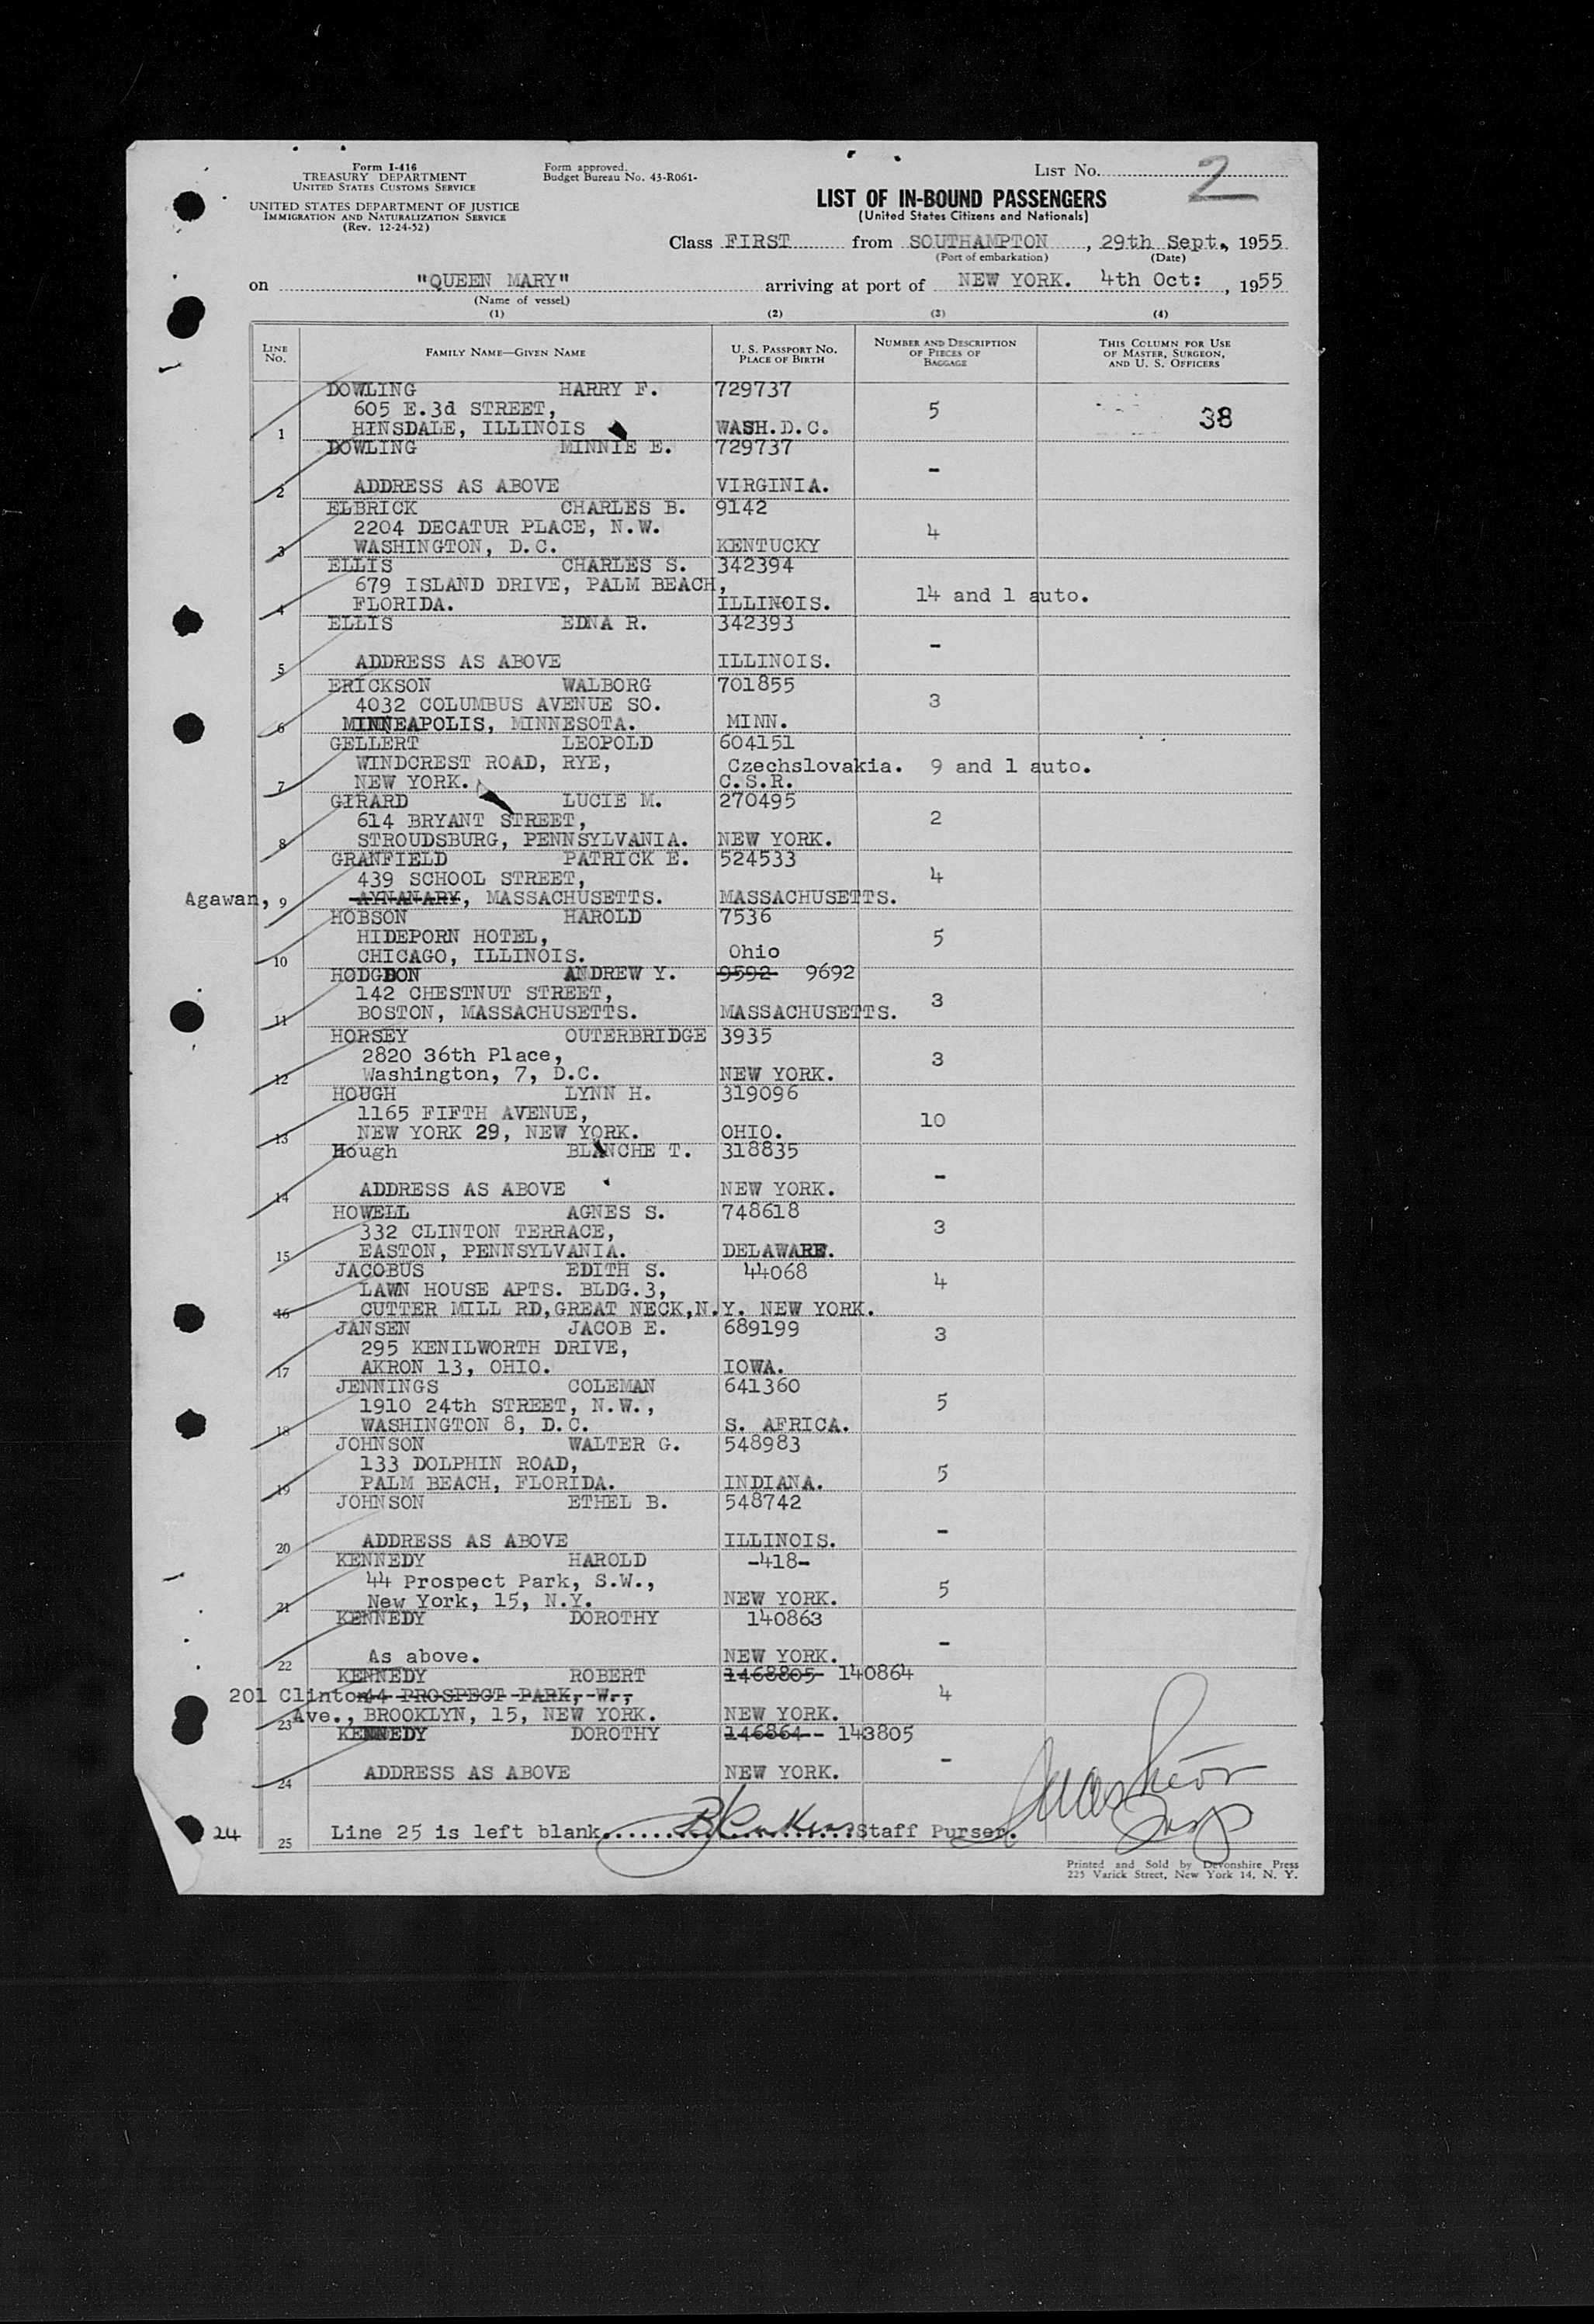 Form I-416
TREASURY DEPARTMENT
UNITED STATES CUSTOMS SERVICE
UNITED STATES DEPARTMENT OF JUSTICE
IMMIGRATION AND NATURALIZATION SERVICE
(Rev. 12-24-52)
Form approved.
Budget Bureau No. 43-R061-
LIST No. 2
LIST OF IN-BOUND PASSENGERS
(United States Citizens and Nationals)
Class FIRST from SOUTHAMPTON, 29th Sept., 1955
(Port of embarkation) (Date)
on "QUEEN MARY" arriving at port of NEW YORK. 4th Oct: , 1955
(Name of vessel)
(1) (2) (3) (4)
LINE No. FAMILY NAME—GIVEN NAME U. S. PASSPORT NO. PLACE OF BIRTH NUMBER AND DESCRIPTION OF PIECES OF BAGGAGE THIS COLUMN FOR USE OF MASTER, SURGEON, AND U. S. OFFICERS
DOWLING HARRY F. 729737
605 E.3d STREET, 5 38
1 HINSDALE, ILLINOIS WASH.D.C.
DOWLING MINNIE E. 729737
-
2 ADDRESS AS ABOVE VIRGINIA.
ELBRICK CHARLES B. 9142
2204 DECATUR PLACE, N.W. 4
3 WASHINGTON, D.C. KENTUCKY
ELLIS CHARLES S. 342394
679 ISLAND DRIVE, PALM BEACH, 14 and 1 auto.
4 FLORIDA. ILLINOIS.
ELLIS EDNA R. 342393
-
5 ADDRESS AS ABOVE ILLINOIS.
ERICKSON WALBORG 701855
4032 COLUMBUS AVENUE SO. 3
6 MINNEAPOLIS, MINNESOTA. MINN.
GELLERT LEOPOLD 604151
WINDCREST ROAD, RYE, Czechslovakia. 9 and 1 auto.
7 NEW YORK. C.S.R.
GIRARD LUCIE M. 270495
614 BRYANT STREET, 2
8 STROUDSBURG, PENNSYLVANIA. NEW YORK.
GRANFIELD PATRICK E. 524533
439 SCHOOL STREET, 4
Agawan, 9 AYNANARY, MASSACHUSETTS. MASSACHUSETTS.
HOBSON HAROLD 7536
HIDEPORN HOTEL, 5
10 CHICAGO, ILLINOIS. Ohio
HODGDON ANDREW Y. 9592 9692
142 CHESTNUT STREET, 3
11 BOSTON, MASSACHUSETTS. MASSACHUSETTS.
HORSEY OUTERBRIDGE 3935
2820 36th Place, 3
12 Washington, 7, D.C. NEW YORK.
HOUGH LYNN H. 319096
1165 FIFTH AVENUE, 10
13 NEW YORK 29, NEW YORK. OHIO.
Hough BLANCHE T. 318835
-
14 ADDRESS AS ABOVE NEW YORK.
HOWELL AGNES S. 748618
332 CLINTON TERRACE, 3
15 EASTON, PENNSYLVANIA. DELAWARE.
JACOBUS EDITH S. 44068
LAWN HOUSE APTS. BLDG.3, 4
16 CUTTER MILL RD,GREAT NECK,N.Y. NEW YORK.
JANSEN JACOB E. 689199
295 KENILWORTH DRIVE, 3
17 AKRON 13, OHIO. IOWA.
JENNINGS COLEMAN 641360
1910 24th STREET, N.W., 5
18 WASHINGTON 8, D.C. S. AFRICA.
JOHNSON WALTER G. 548983
133 DOLPHIN ROAD, 5
19 PALM BEACH, FLORIDA. INDIANA.
JOHNSON ETHEL B. 548742
-
20 ADDRESS AS ABOVE ILLINOIS.
KENNEDY HAROLD -418-
44 Prospect Park, S.W., 5
21 New York, 15, N.Y. NEW YORK.
KENNEDY DOROTHY 140863
-
22 As above. NEW YORK.
KENNEDY ROBERT 1468805 140864
201 Clinton 44 PROSPECT PARK, W., 4
23 Ave., BROOKLYN, 15, NEW YORK. NEW YORK.
KENNEDY DOROTHY 146864-- 143805
-
24 ADDRESS AS ABOVE NEW YORK.
24 25 Line 25 is left blank. Staff Purser.
Printed and Sold by Devonshire Press
225 Varick Street, New York 14, N. Y.